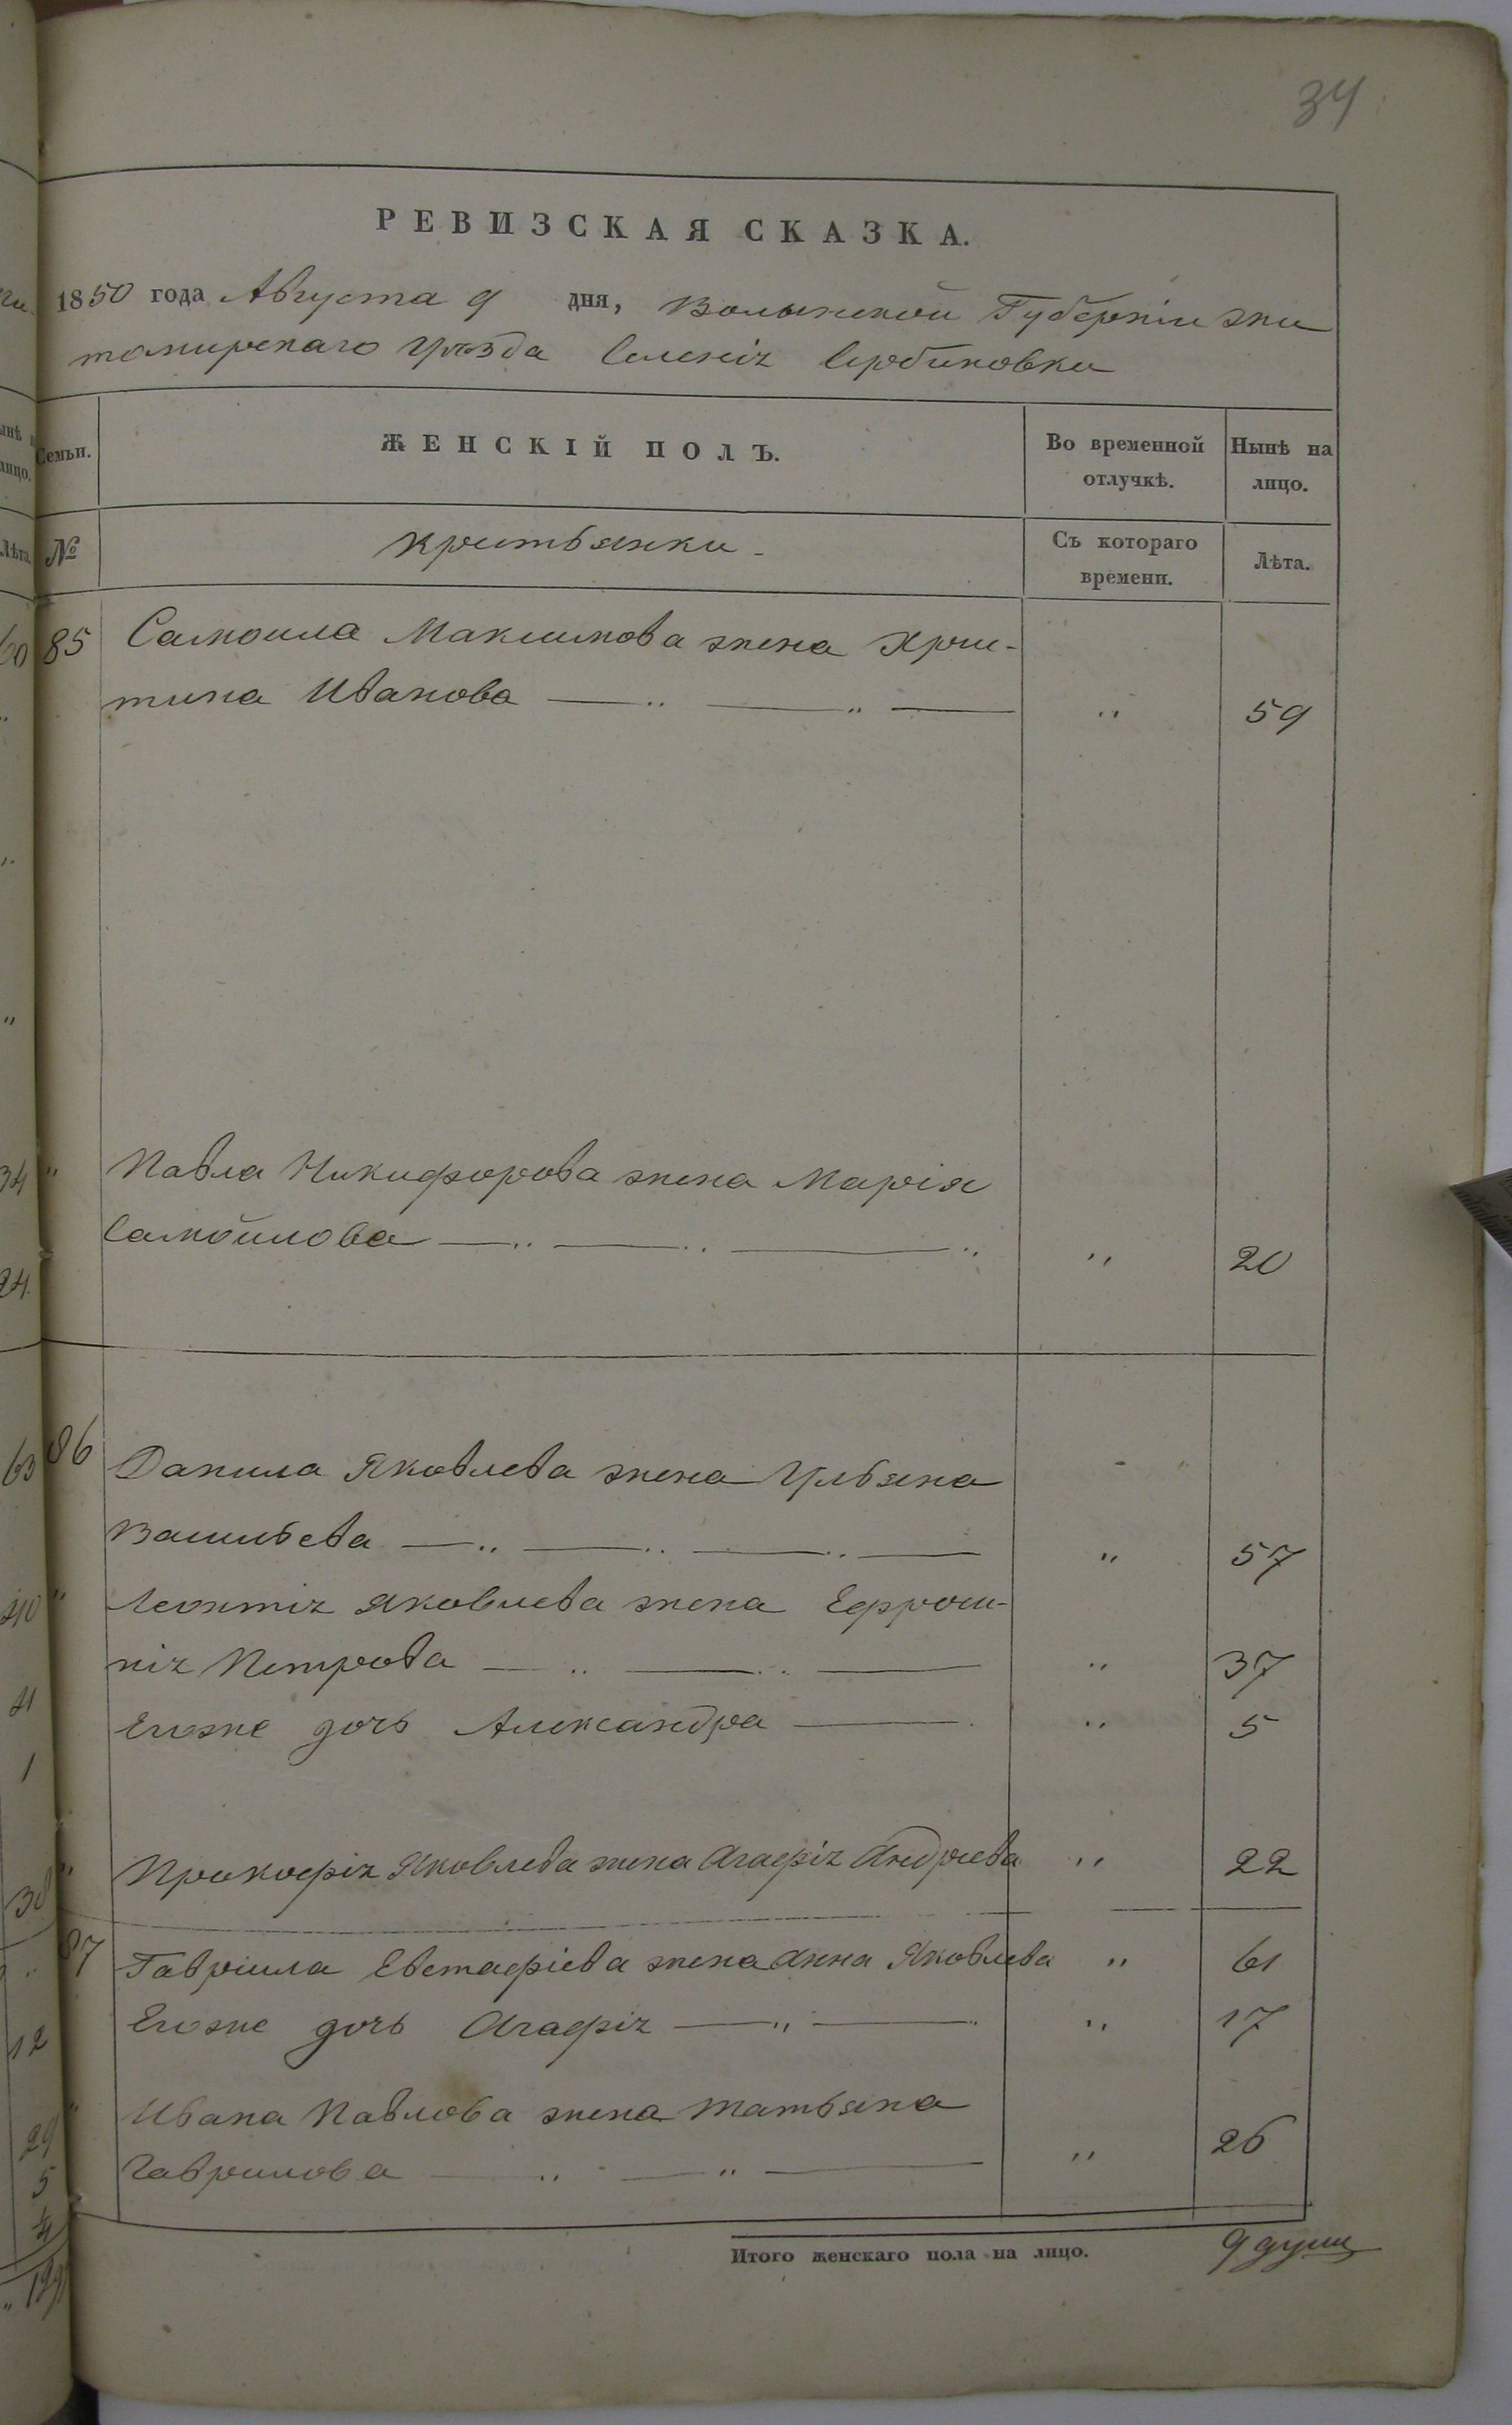 34
РЕВИЗСКАЯ СКАЗКА.
1850 года Августа 9 дня, Волынской Губерніи Жи
томирскаго Уѣзда Селенія Сербиновки
Семьи. ЖЕНСКІЙ ПОЛЪ. Во временной отлучкѣ. Нынѣ на лицо.
№ Крестьянки - Съ котораго времени. Лѣта.
85 Самоила Максимова жена Хрис-
тина Иванова — " — " — " 59
" Павла Никифорова жена Марія
Самойлова — " — " — " " 20
86 Данила Яковлева жена Ульяна
Васильева — " — " — " — " 57
" Леонтія Яковлева жена Ефроси-
нія Петрова — " — " — " 37
Егоже дочь Александра — " 5
" Прокофія Яковлева жена Агафія Андреева " 22
87 Гавріила Евстафіева жена Анна Яковлева " 61
Егоже дочь Агафія — " — " 17
" Ивана Павлова жена Татьяна
Гаврилова — " — " — " 26
Итого женскаго пола на лицо. 9 душ